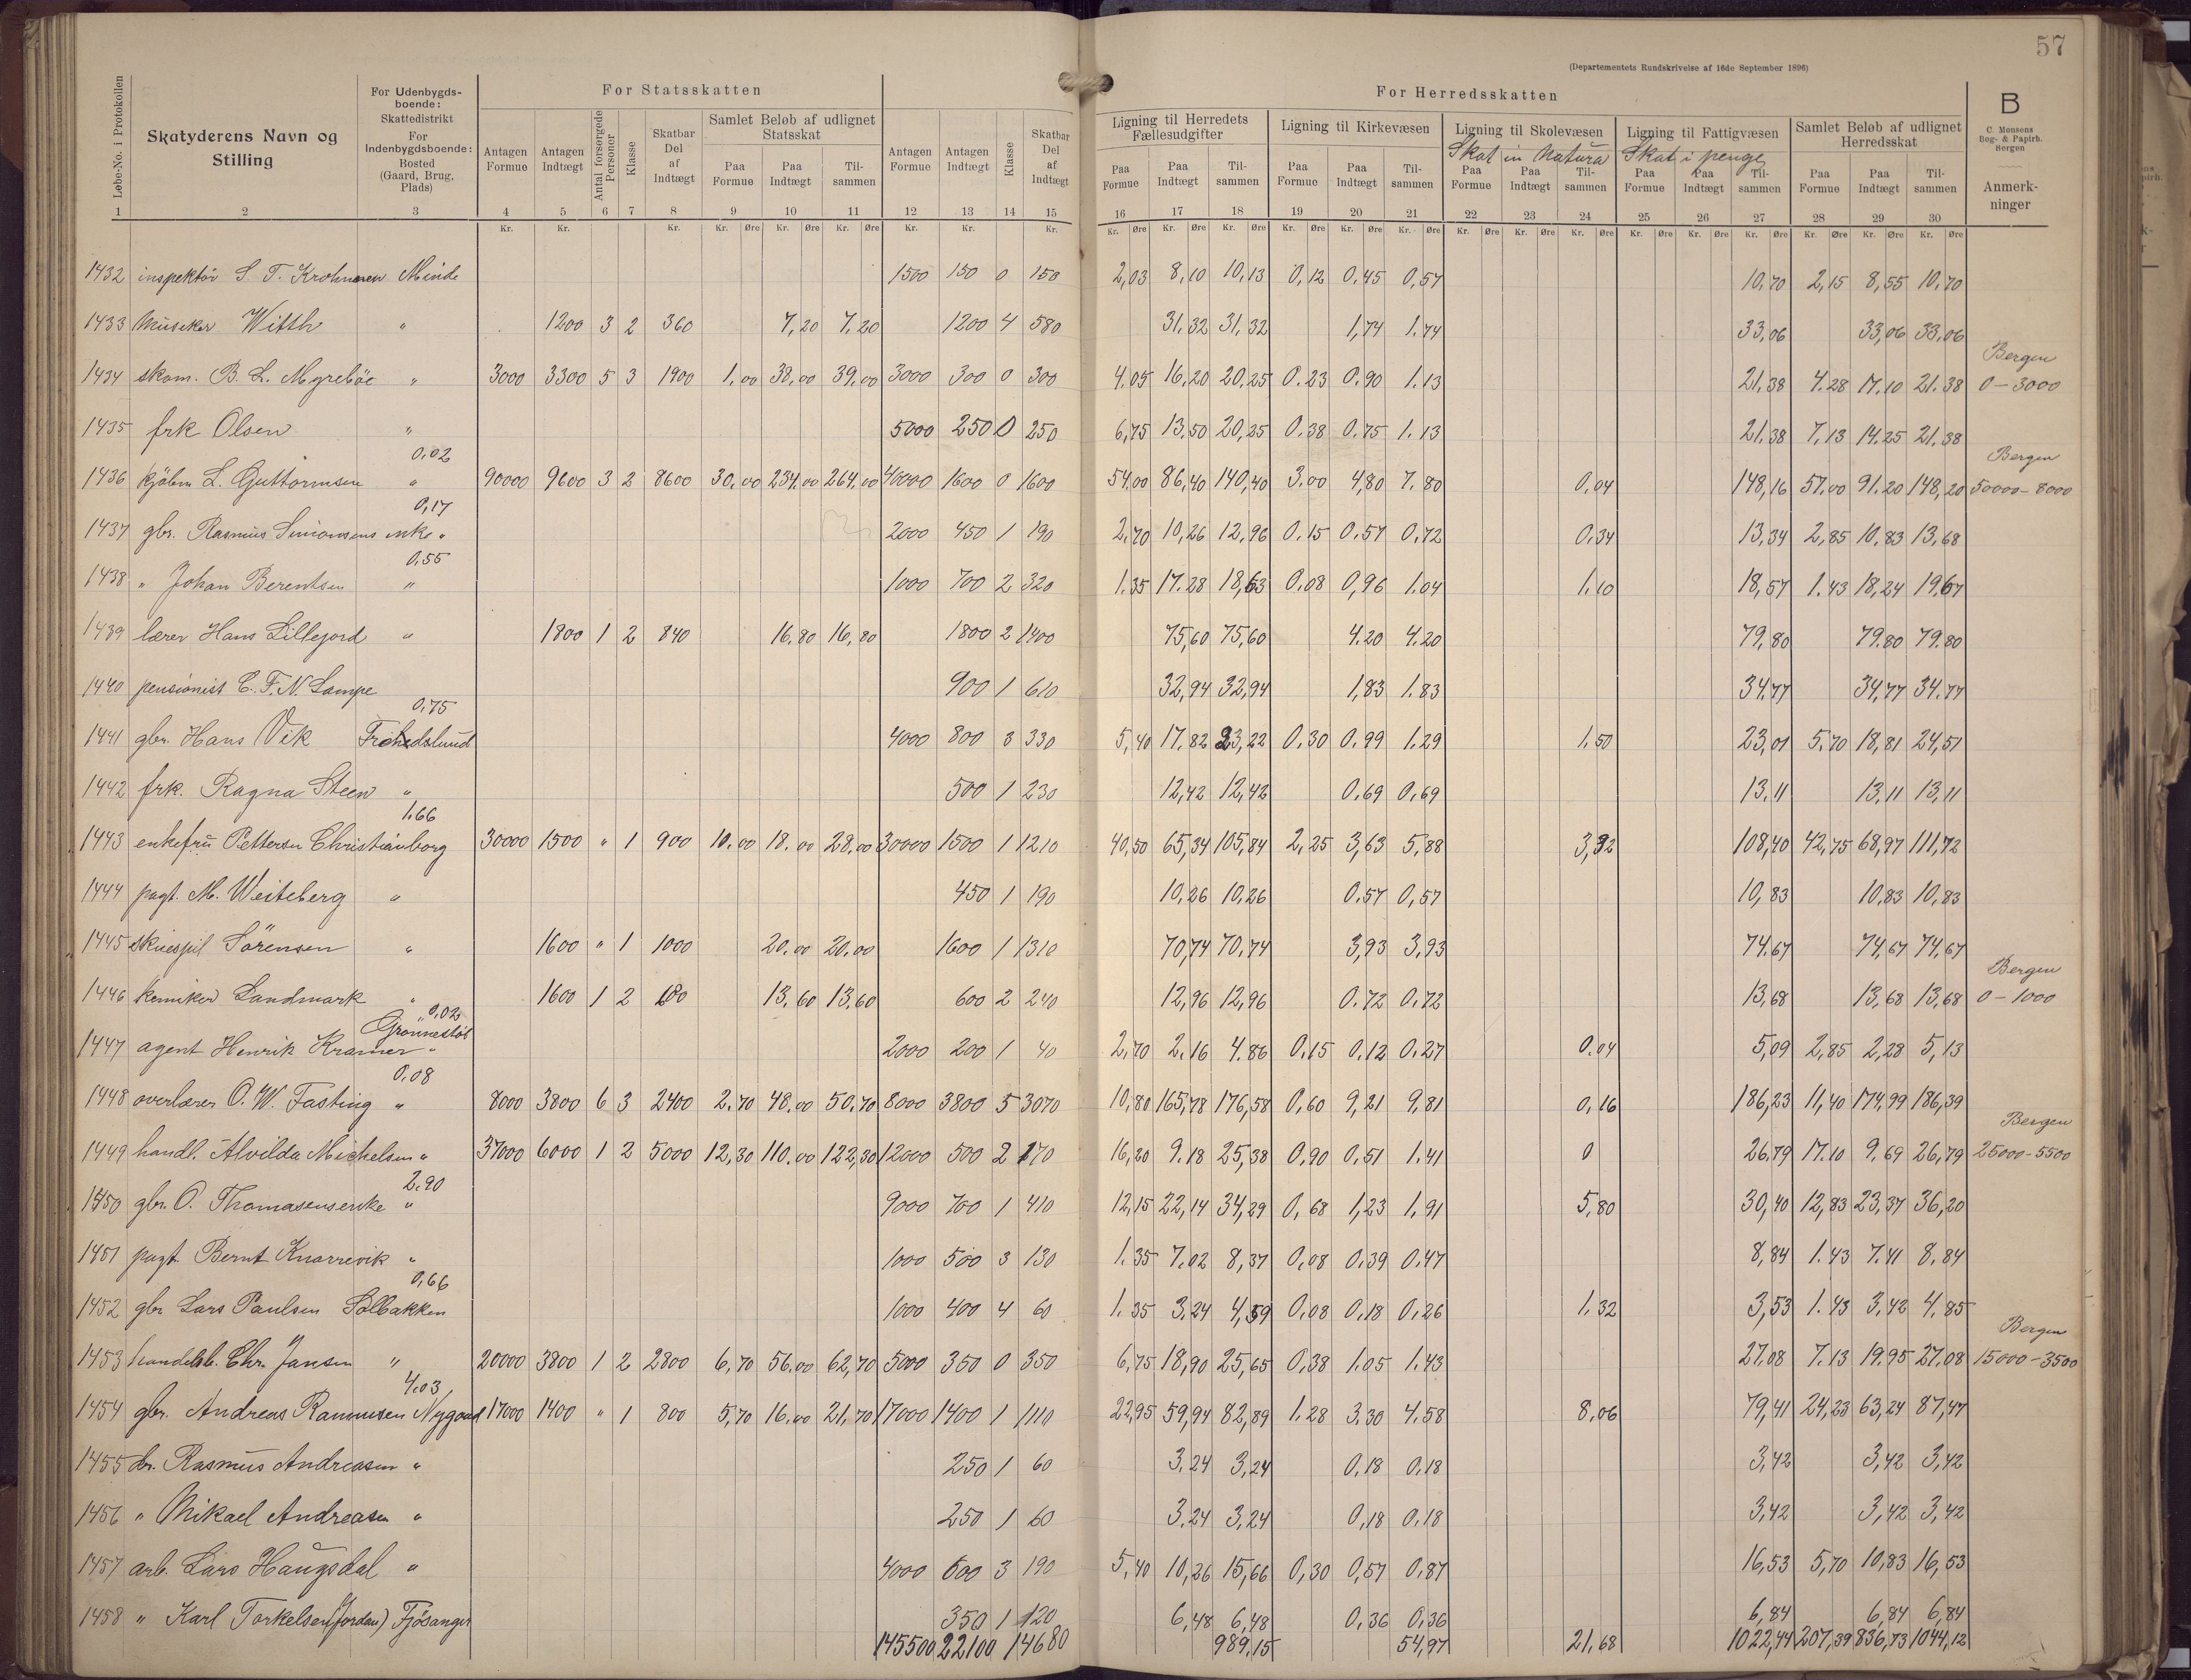 57
(Departementets Rundskrivelse af 16de September 1896)
For Statsskatten For Herredsskatten B
C. Monsens Bog- & Papirh. Bergen
Løbe-No. i Protokollen Skatyderens Navn og Stilling For Udenbygdsboende: Skattedistrikt For Indenbygdsboende: Bosted (Gaard, Brug, Plads) Antagen Formue Antagen Indtægt Antal forsørgede Personer Klasse Skatbar Del af Indtægt Samlet Beløb af udlignet Statsskat Antagen Formue Antagen Indtægt Klasse Skatbar Del af Indtægt Ligning til Herredets Fællesudgifter Ligning til Kirkevæsen Ligning til Skolevæsen Ligning til Fattigvæsen Samlet Beløb af udlignet Herredsskat Anmerkninger
Skat in natura Skat i penge
Paa Formue Paa Indtægt Tilsammen Paa Formue Paa Indtægt Tilsammen Paa Formue Paa Indtægt Tilsammen Paa Formue Paa Indtægt Tilsammen Paa Formue Paa Indtægt Tilsammen Paa Formue Paa Indtægt Tilsammen
1 2 3 4 5 6 7 8 9 10 11 12 13 14 15 16 17 18 19 20 21 22 23 24 25 26 27 28 29 30
Kr. Kr. Kr. Kr. Øre Kr. Øre Kr. Øre Kr. Kr. Kr. Kr. Øre Kr. Øre Kr. Øre Kr. Øre Kr. Øre Kr. Øre Kr. Øre Kr. Øre Kr. Øre Kr. Øre Kr. Øre Kr. Øre Kr. Øre Kr. Øre Kr. Øre
1432 inspektör S. T. Minde 1500 150 0 150 2,03 8,10 10,13 0,12 0,45 0,57 10,70 2,15 8,55 10,70
1433 Musiker Witth " 1200 3 2 360 7,20 7,20 1200 4 580 31,32 31,32 1,74 1,74 33,06 33,06 33,06
Bergen
1434 skom. B. L. Myrebøe " 3000 3300 5 3 1900 1,00 38,00 39,00 3000 300 0 300 4,05 16,20 20,25 0.23 0,90 1.13 21,38 4.28 17,10 21.38 0 – 3000
1435 frk Olsen " 5000 250 0 250 6,75 13,50 20,25 0.38 0.75 1.13 21,38 7,13 14.25 21,38
0,02 Bergen
1436 kjöbm L. Guttormsen " 90000 9600 3 2 8600 30,00 234,00 264,00 40000 1600 0 1600 54,00 86,40 140,40 3.00 4,80 7.80 0,04 148,16 57.00 91.20 148,20 50000 – 8000
0,17
1437 gbr. Rasmus Simonsens enke " 2000 450 1 190 2,70 10,26 12,96 0.15 0.57 0,72 0,34 13,34 2,85 10,83 13,68
0,55
1438 " Johan Berentsen " 1000 700 2 320 1.35 17.28 18,63 0.08 0,96 1.04 1,10 18,57 1.43 18,24 19,67
1439 lærer Hans Lillejord " 1800 1 2 840 16,80 16,80 1800 2 1400 75,60 75,60 4.20 4.20 79,80 79.80 79.80
1440 pensionist C. F. N. Lampe 900 1 610 32,94 32,94 1,83 1.83 34,77 34,77 34.77
0,75
1441 gbr. Hans Vik Fredslund 4000 800 3 330 5,40 17,82 23,22 0,30 0.99 1.29 1,50 23,01 5,70 18,81 24,51
1442 frk. Ragna Steen " 500 1 230 12,42 12,42 0.69 0,69 13,11 13,11 13,11
1,66
1443 enkefru Pettersen Christianborg 30000 1500 " 1 900 10,00 18,00 28,00 30000 1500 1 1210 40,50 65,34 105,84 2,25 3,63 5,88 3,32 108,40 42,75 68,97 111,72
1444 pagt. M. Weiteberg " 450 1 190 10,26 10,26 0.57 0,57 10,83 10,83 10,83
1445 skuespil Sörensen " 1600 " 1 1000 20,00 20,00 1600 1 1310 70,74 70,74 3,93 3,93 74.67 74,67 74,67
Bergen
1446 kemiker Landmark " 1600 1 2 680 13,60 13,60 600 2 240 12,96 12,96 0.72 0,72 13,68 13,68 13,68 0 – 1000
0,02
Grønnestøl
1447 agent Henrik Kramer " 2000 200 1 40 2,70 2.16 4.86 0,15 0.12 0.27 0.04 5,09 2,85 2,28 5,13
0,08
1448 overlærer O. W. Fasting " 8000 3800 6 3 2400 2,70 48,00 50,70 8000 3800 5 3070 10,80 165,78 176,58 0,60 9,21 9,81 0,16 186,23 11,40 174,99 186,39
Bergen
1449 handl. Alvilda Michelsen " 37000 6000 1 2 5000 12,30 110,00 122,30 12000 500 2 170 16,20 9.18 25,38 0,90 0,51 1,41 0 26,79 17.10 9,69 26,79 25000 – 5500
2.90
1450 gbr. O. Thomasensenke " 9000 700 1 410 12,15 22,14 34,29 0,68 1,23 1,91 5,80 30,40 12,83 23,37 36,20
1451 pagt. Bernt Knarrevik " 1000 500 3 130 1.35 7,02 8,37 0,08 0.39 0.47 8,84 1.43 7.41 8,84
0,66
1452 gbr Lars Paulsen Solbakken 1000 400 4 60 1.35 3,24 4,59 0,08 0,18 0,26 1,32 3,53 1.43 3,42 4,85
Bergen
1453 handelsb. Chr. Jansen " 20000 3800 1 2 2800 6,70 56,00 62,70 5000 350 0 350 6,75 18,90 25,65 0,38 1.05 1,43 27,08 7.13 19.95 27,08 15000 – 3500
4,03
1454 gbr. Andreas Rasmusen Nygaard 17000 1400 " 1 800 5,70 16,00 21,70 17000 1400 1 1110 22,95 59,94 82,89 1.28 3.30 4.58 8,06 79,41 24,23 63,24 87,47
1455 dr. Rasmus Andreasen " 250 1 60 3,24 3,24 0,18 0,18 3,42 3,42 3,42
1456 " Mikael Andreasen " 250 1 60 3.24 3,24 0,18 0,18 3,42 3,42 3,42
1457 arb. Lars Haugsdal " 4000 600 3 190 5,40 10,26 15,66 0,30 0,57 0,87 16,53 5,70 10,83 16,53
1458 " Karl Torkelsen (Jordan) Fjösanger 350 1 120 6,48 6,48 0,36 0,36 6,84 6,84 6,84
145500 22100 14680 989,15 54,97 21,68 1022,44 207,39 836,73 1044,12